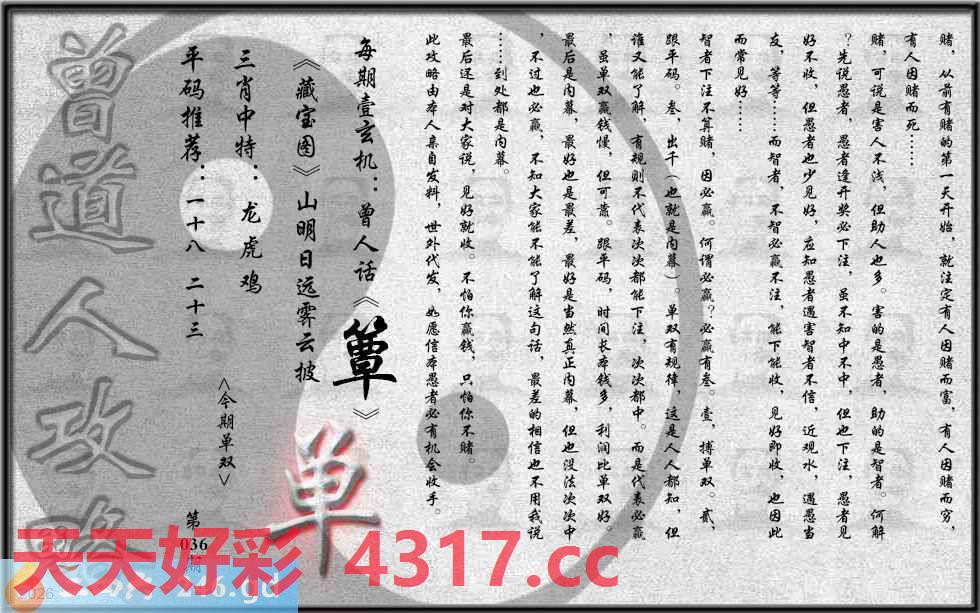 赌，从前有赌的第一天开始，就注定有人因赌而富，有人因赌而穷，
有人因赌而死……
赌，可说是害人不浅，但助人也多。害的是愚者，助的是智者。何解
？先说愚者，愚者逢开奖必下注，虽不知中不中，但也下注，愚者见
好不收，但愚者也少见好，应知愚者遇害智者不信，近观水，遇愚当
友，等等……而智者，不智必赢不注，能下能收，见好即收，也因此
而常见好……
智者下注不算赌，因必赢。何谓必赢？必赢有叁。壹，搏单双。贰，
跟平码。叁，出千（也就是内幕）。单双有规律，这是人人都知，但
谁又能了解，有规则不代表次次都能下注，次次都中。而是代表必赢
，虽单双赢钱慢，但可靠。跟平码，时间长本钱多，利润比单双好。
最后是内幕，最好也是最差，最好是当然真正内幕，但也没法次次中
，不过也必赢，不知大家能不能了解这句话，最差的相信也不用我说
……到处都是内幕。
最后还是对大家说，见好就收。不怕你赢钱，只怕你不赌。
此攻略由本人亲自发料，世外代发，如愿信本愚者必有机会收手。
每期壹玄机：曾人话《簟》
《藏宝图》山明日远霁云披
三肖中特：龙虎鸡
平码推荐：一十八 二十三
<今期单双>
单
第
036
期
曾道人攻略
天天好彩 4317.cc
246.gd
2026